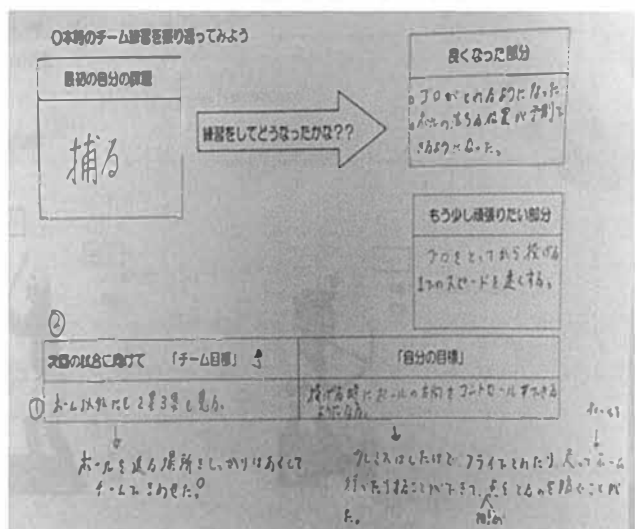 ○本時のチーム練習を振り返ってみよう
最初の自分の課題
捕る
練習をしてどうなったかな??
良くなった部分
・ゴロがとれるようになった
・ボールの落ちる位置が予測で
きるようになった。
もう少し頑張りたい部分
ゴロをとってから投げる
までのスピードを速くする。
②
次回の試合に向けて 「チーム目標」
「自分の目標」
① ホーム以外にも2塁3塁も見る。
投げる時にボールの方向をコントロールできる
ようになる。
↓
ボールを送る場所をしっかりはあくして
チームで
↓
ミスはしたけど フライとれたり 走ってホーム
行ったりすることができて、点をとるのを防ぐことが
た。
相手が